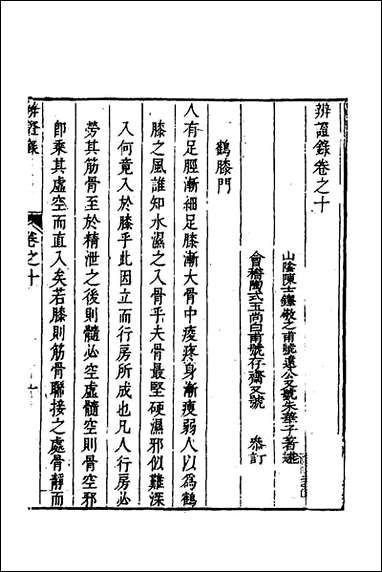 辨證錄卷之十
山陰陳士鐸敬之甫號遠公又號朱華子著述
會稽陶式玉尚白甫號存齋又號 叅訂
鶴膝門
人有足脛漸細足膝漸大骨中痠疼身漸瘦弱人以為鶴
膝之風誰知水濕之入骨乎夫骨最堅硬濕邪似難深
入何竟入於膝乎此因立而行房所成也凡人行房必
勞其筋骨至於精泄之後則髓必空虛髓空則骨空邪
卽乘其虛空而直入矣若膝則筋骨聯接之處骨靜而
辨證錄 卷之十 一